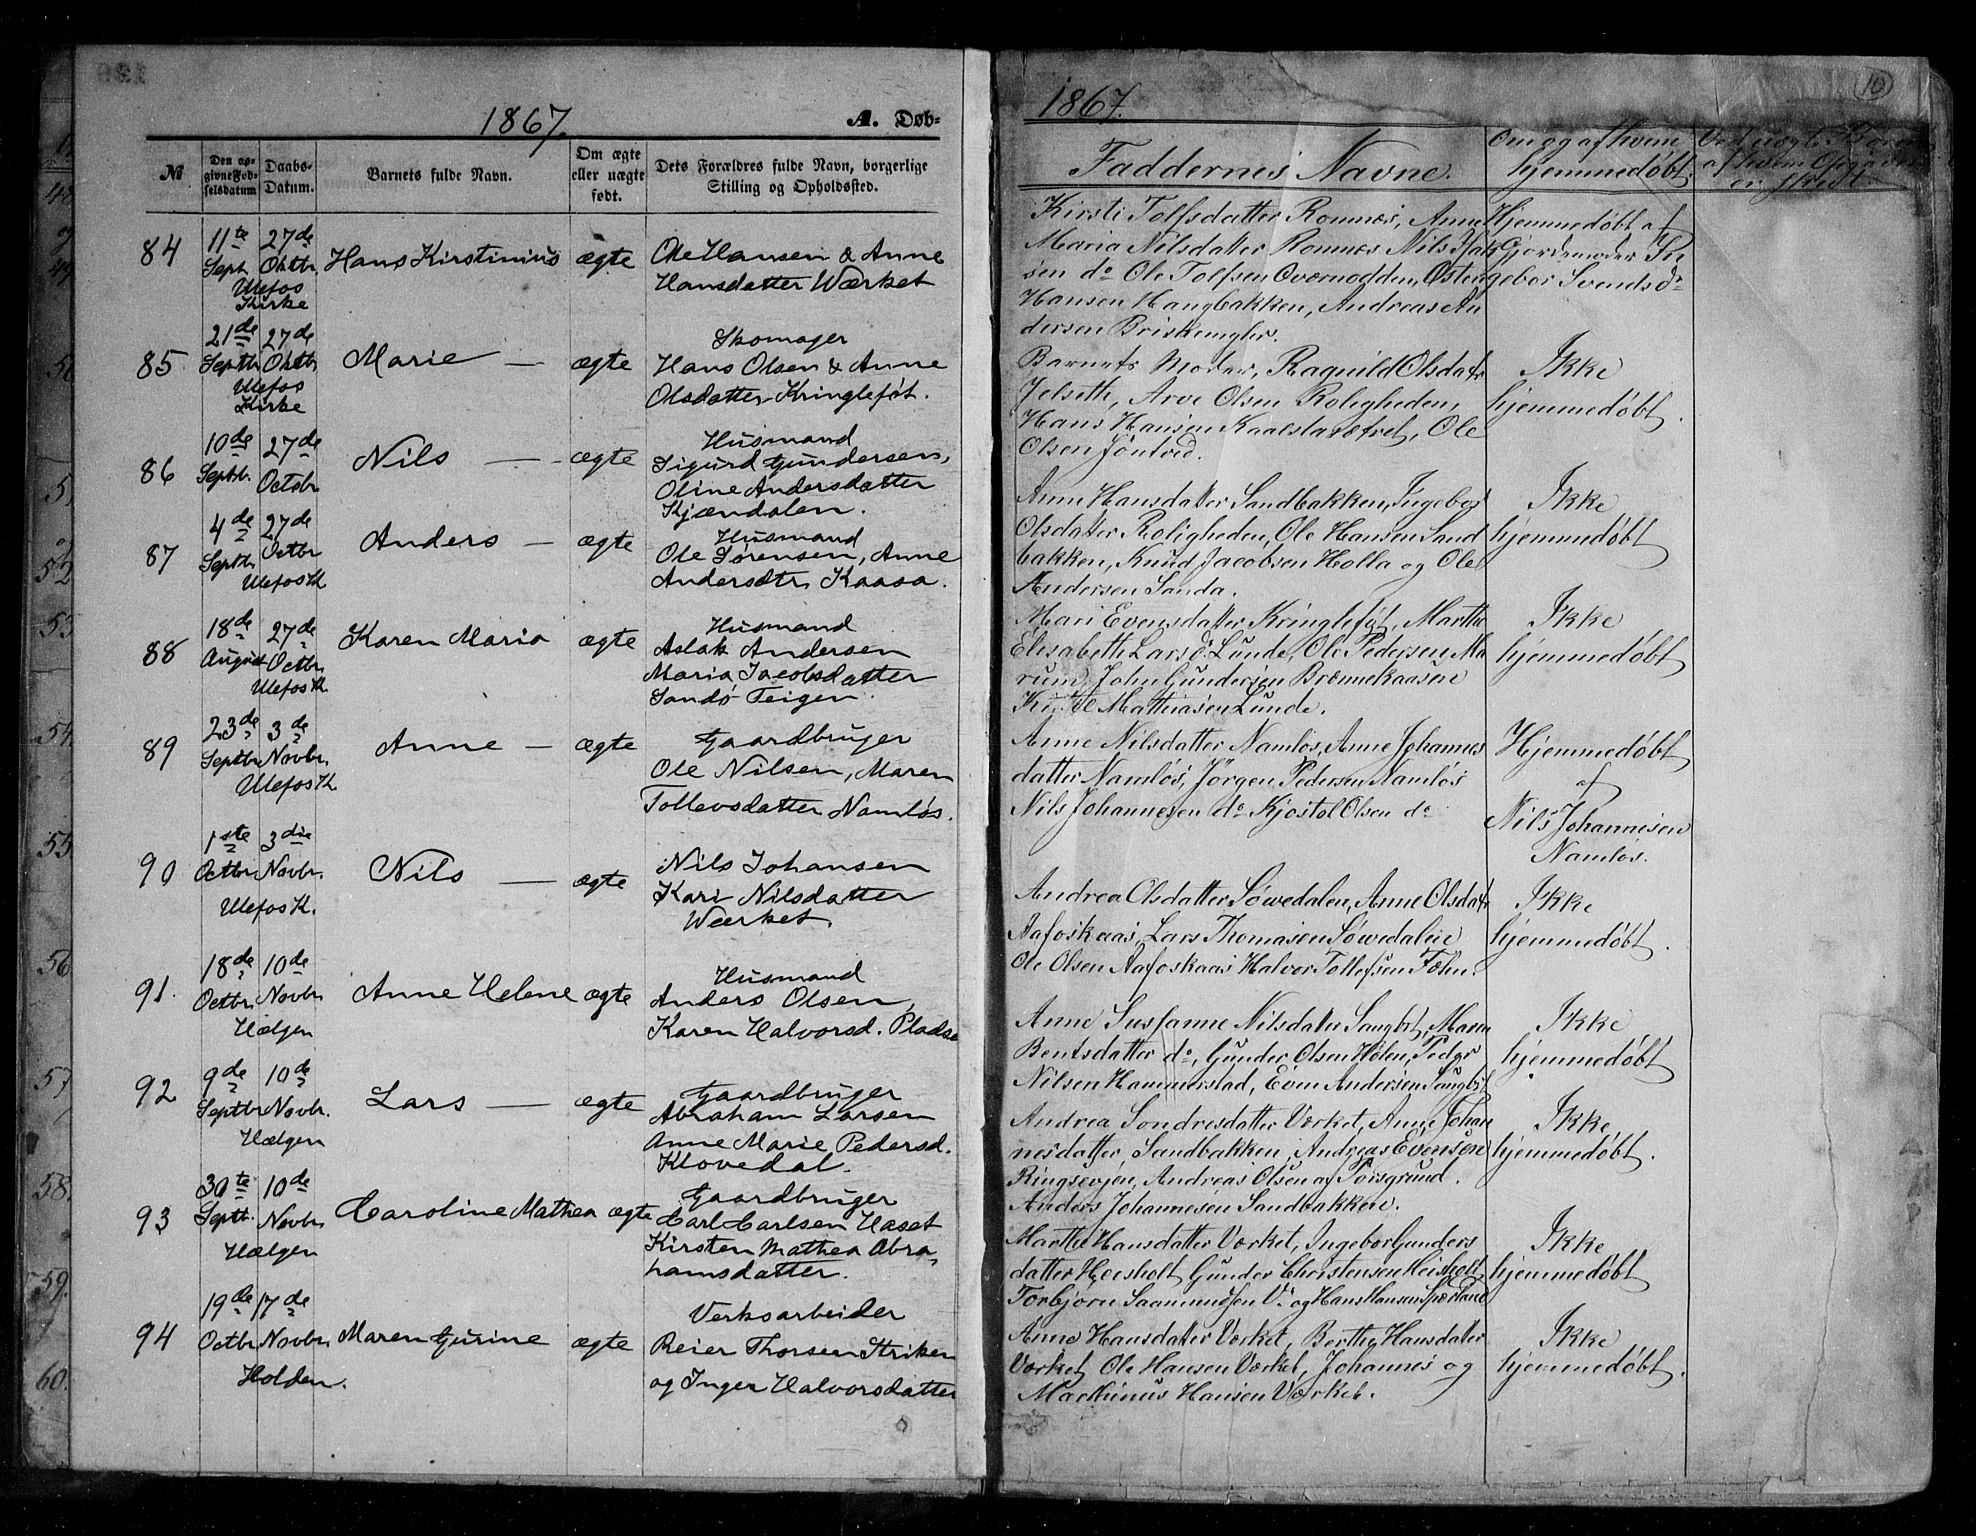 1867.
A. Døb-
№
Den op-
givne Fød-
selsdatum
Daabs-
Datum.
Barnets fulde Navn.
Om ægte
eller uægte
født.
Dets Forældres fulde Navn, borgerlige
Stilling og Opholdssted.
84
11te
Sept.
27de
Oktbr.
Ulefos
Kirke
Hans Kirstinius
ægte
Ole Hansen & Anne
Hansdatter Værket
85
21de
Septbr
27de
Oktbr.
Ulefos
Kirke
Marie —
ægte
Skomager
Hans Olsen & Anne
Olsdatter Kringlefot.
86
10de
Septbr.
27de
Octobr
Nils —
ægte
Husmand
Sigurd Gundersen,
Oline Andersdatter
Kjændalen.
87
4de
Septbr
27de
Octbr
Ulefos K
Anders —
ægte
Husmand
Ole Sørensen, Anne
Andersdtr Kaasa.
88
18de
August
27de
Octbr.
Ulefos K.
Karen Maria
ægte
Husmand
Aslak Andersen
Maria Jacobsdatter
Sandø Teigen.
89
23de
Septbr
3de
Novbr.
Ulefos K.
Anne —
ægte
Gaardbruger
Ole Nilsen, Maren
Tollevsdatter Namløs.
90
1ste
Octbr
3die
Novbr.
Ulefos K.
Nils —
ægte
Nils Johansen
Kari Nilsdatter
Værket.
91.
18de
Octbr.
10de
Novbr.
Hælgen
Anne Helene
ægte
Husmand
Anders Olsen,
Karen Halvorsd. Pladsen
92
9de
Septbr
10de
Novbr.
Hælgen
Lars —
ægte
Gaardbruger
Abraham Larsen
Anne Marie Pedersd.
Klovedal.
93
30te
Septbr.
10de
Novbr.
Hælgen
Caroline Mathea
ægte
Gaardbruger
Carl Carlsen Haset
Kirsten Mathea Abra-
hamsdatter.
94
19de
Octbr.
17de
Novbr.
Holden.
Maren Gurine
ægte
Verksarbeider
Reier Thorsen Striken
og Inger Halvorsdatter
1867.
10
Faddernes Navne.
Om og af hvem
hjemmedøbt.
Ved uægte Børn
af hvem Opgaven
er skedt.
Kirsti Tolfsdatter Romnes, Anne
Maria Nilsdatter Romnes Nils Isak
sen do Ole Tolfsen Overnodden, Østen
Hansen Haugbakken, Andreas An
dersen Briskemyhr.
Hjemmedøbt af
Gjordemoder In
geborg Svendsdr
Barnets Moder, Ragnild Olsdatr
Jelseth, Arve Olsen Roligheden,
Hans Hansen Kaalstadtvet, Ole
Olsen Jøntvid.
Ikke
hjemmedøbt.
Anne Hansdatter Sandbakken, Ingebor
Olsdatter Roligheden, Ole Hansen Sand
bakken, Knud Jacobsen Holla og Ole
Andersen Sanda.
Ikke
hjemmedøbt
Mari Evensdatter Kringlefot, Marthe
Elisabeth Larsd. Lunde, Ole Pedersen Ma
rum, John Gundersen Brænnekaasen
Mathiasen Lunde.
Ikke
hjemmedøbt
Anne Nilsdatter Namløs, Anne Johannes
datter Namløs, Jørgen Pedersen Namløs
Nils Johannesen do Kjøstol Olsen do
Hjemmedøbt
af
Nils Johannesen
Namløs.
Andrea Olsdatter Søwedalen, Anne Olsdatr
Aafoskaas, Lars Thomasen Søwedalen
Ole Olsen Aafoskaas Halvor Tollefsen Fæhn.
Ikke
hjemmedøbt.
Anne Susanne Nilsdatter Saugbøt, Maren
Bentsdatter do, Gunder Olsen Holen, Peder
Nilsen Hammerstad, Even Andersen Saugbøt
Ikke
hjemmedøbt
Andrea Sondresdatter Værket, Anne Johan
nesdatter Sandbakken, Andreas Evensen
Ringsevjen, Andreas Olsen af Porsgrund.
Anders Johannesen Sandbakken.
Ikke
hjemmedøbt.
Marthe Hansdatter Værket, Ingebor Gunders
datter Heisholt Gunder Christensen Heisholt
Torbjørn Saamundsen V. og Hans Hansen Sperland
Ikke
hjemmedøbt
Anne Hansdatter Værket, Berthe Hansdatter
Værket, Ole Hansen Værket, Johannes og
Marthinus Hansen Værket.
Ikke
hjemmedøbt.